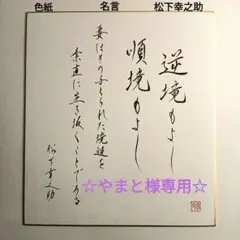 色紙 名言 松下幸之助
逆境もよし
順境もよし
要はその与えられた境遇を
素直に生き抜くことである
松下幸之助
☆やまと様専用☆